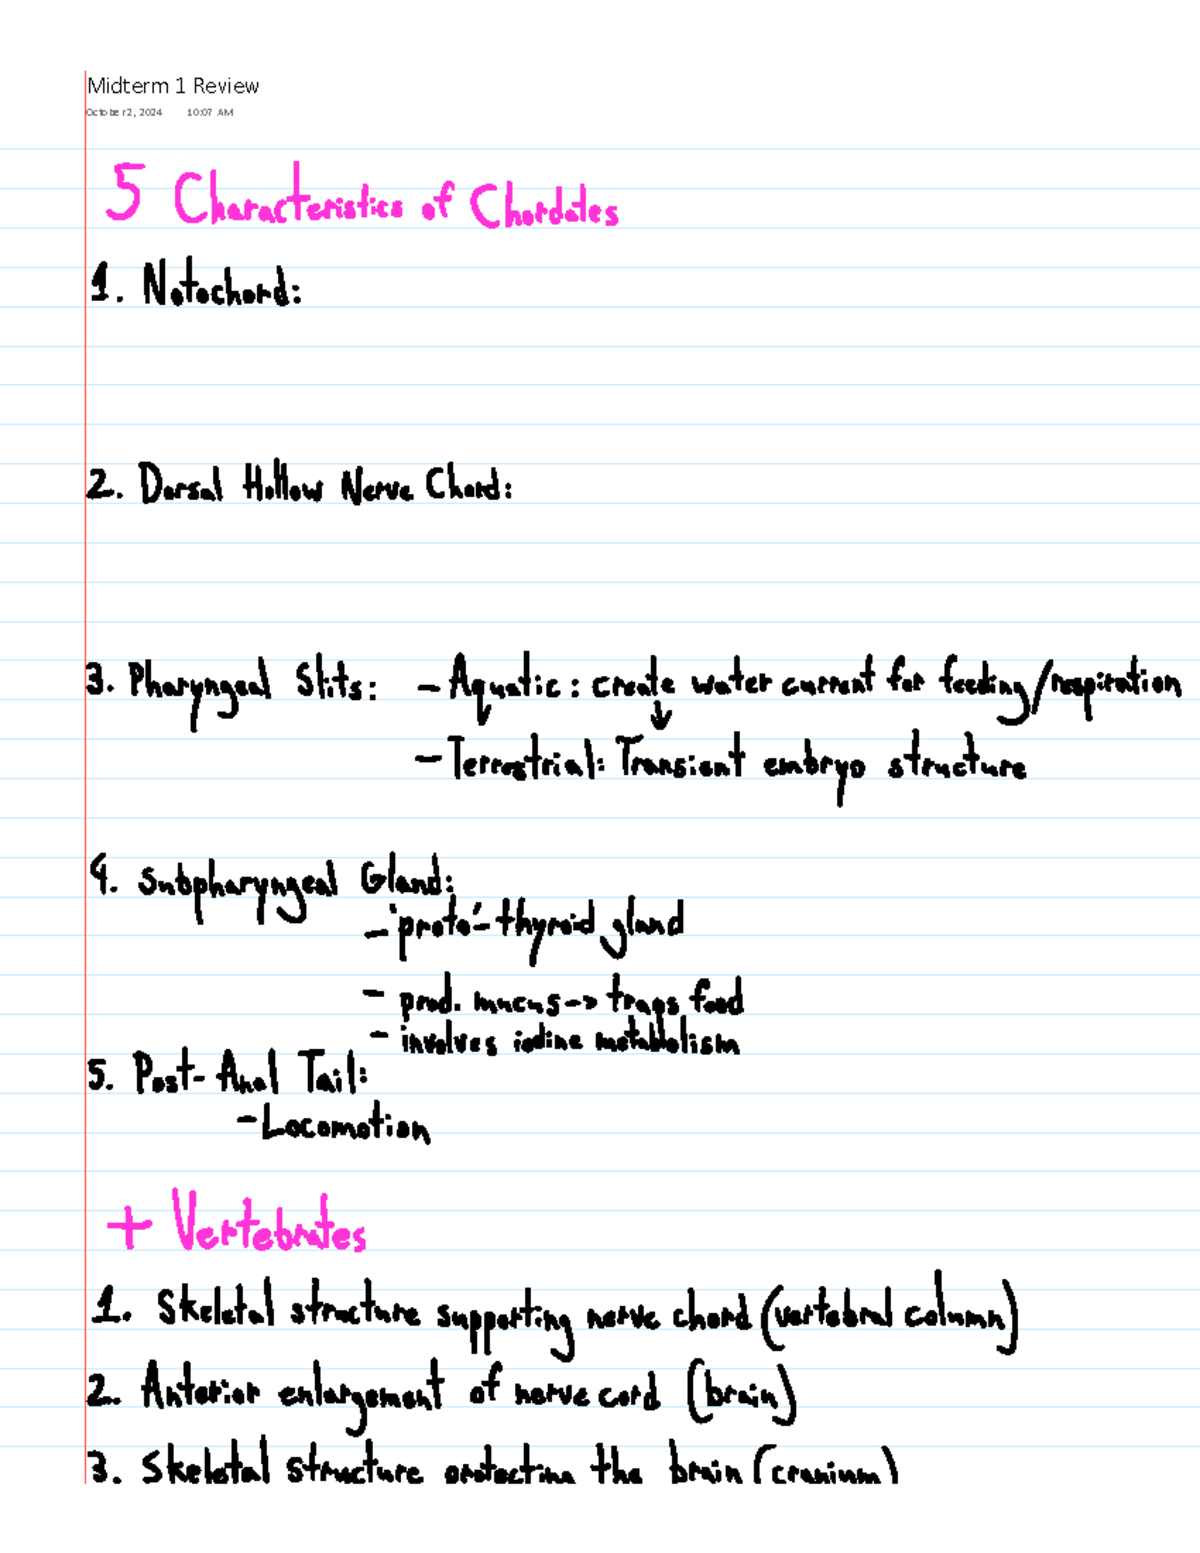 Midterm 1 Review
October 2, 2024 10:07 AM
5 Characteristics of Chordates
1. Notochord:
2. Dorsal Hollow Nerve Chord:
3. Pharyngeal Slits: - Aquatic: create water current for feeding/respiration
- Terrestrial: Transient embryo structure
4. Subpharyngeal Gland:
- 'proto'-thyroid gland
- prod. mucus -> traps food
- involves iodine metabolism
5. Post-Anal Tail:
- Locomotion
+ Vertebrates
1. Skeletal structure supporting nerve chord (vertebral column)
2. Anterior enlargement of nerve cord (brain)
3. Skeletal structure protecting the brain (cranium)